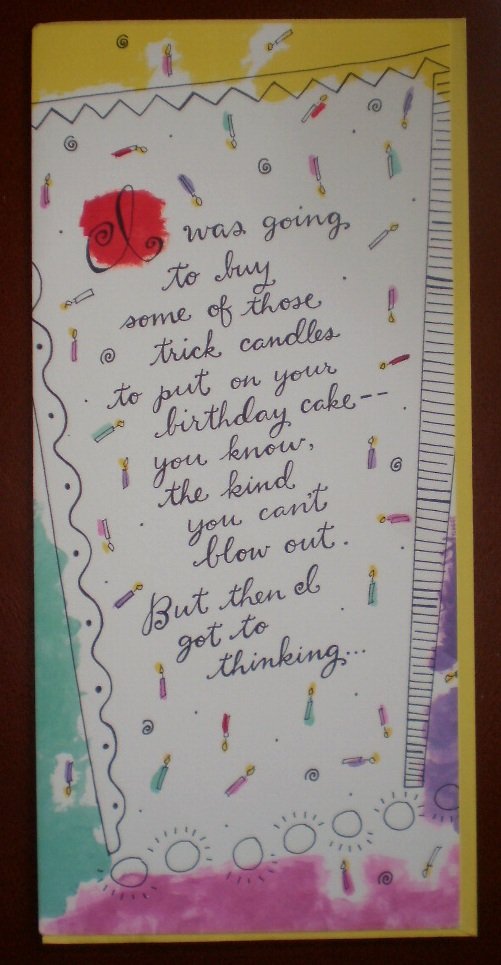 I was going
to buy
some of those
trick candles
to put on your
birthday cake--
you know,
the kind
you can't
blow out.
But then I
got to
thinking...